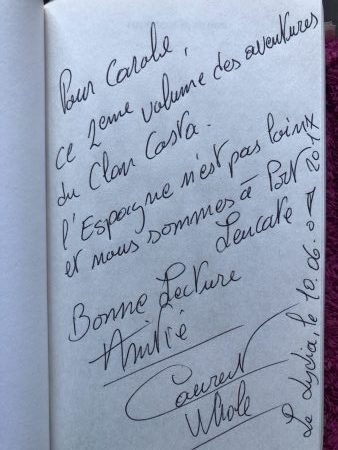 Pour Carole,
ce 2eme volume des aventures
du Clan Costa.
l'Espagne n'est pas loin
et nous sommes à Port
Leucate
Bonne Lecture
Amitié
Laurent
Whale
Le Lydia, le 10.06.2017